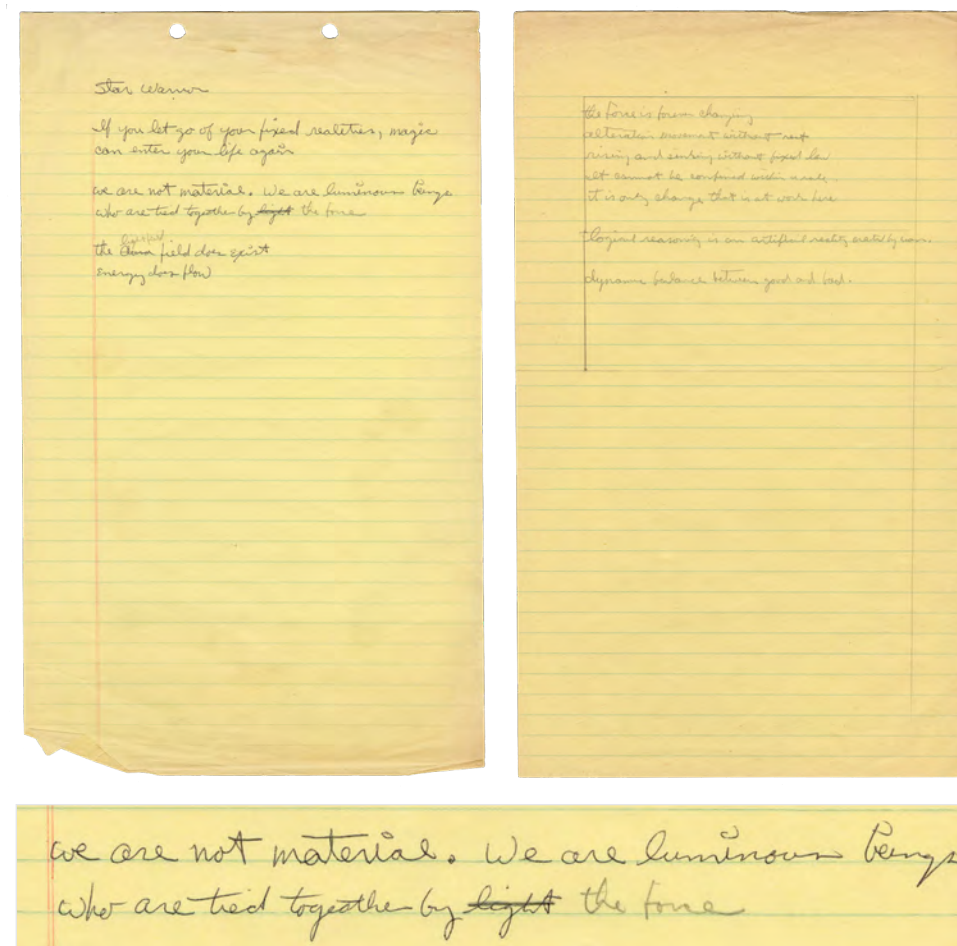 Star Warrior
If you let go of your fixed realities, magic
can enter your life again
we are not material. We are luminous beings
who are tied together by light the force
the field does exist
energy does flow
the Force is forever changing
alteration movement without rest
rising and sinking without fixed law
it cannot be confined within a rule.
it is only change that is at work here
Logical reasoning is an artificial reality created by man.
dynamic balance between good and bad.
we are not material. We are luminous beings
who are tied together by light the force